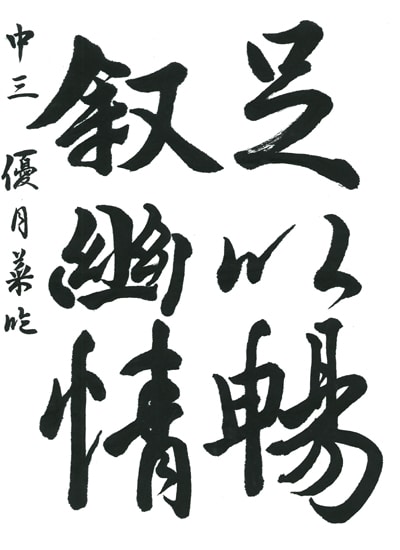 足以暢
叙幽情
中三 優月菜